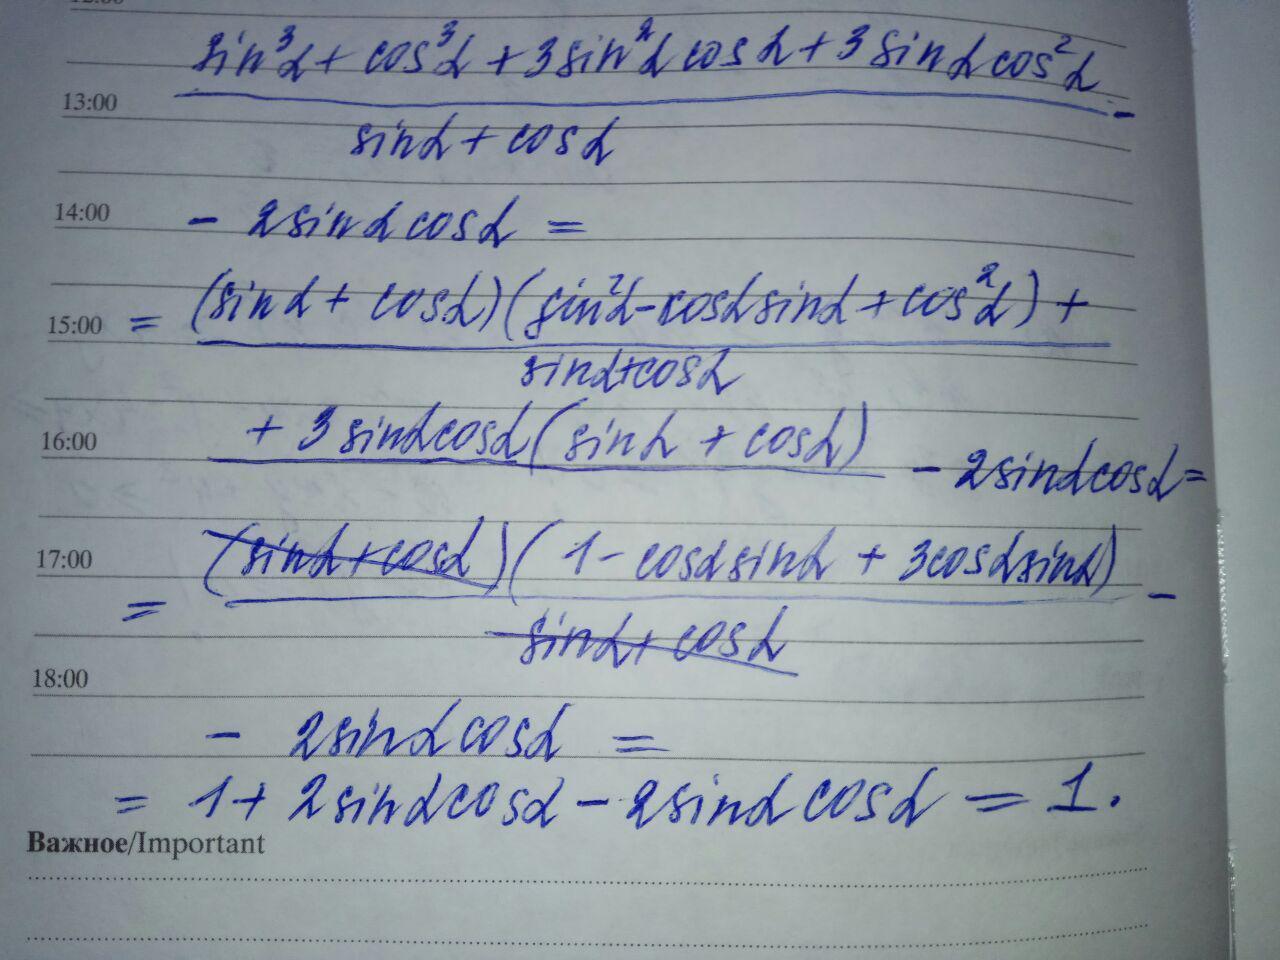 12:00
sin³α + cos³α + 3sin²α cosα + 3sinα cos²α -
13:00
sinα + cosα
14:00 - 2sinα cosα =
15:00 = (sinα + cosα)(sin²α - cosα sinα + cos²α) +
sinα + cosα
16:00 + 3sinα cosα (sinα + cosα) - 2sinα cosα =
17:00 = (sinα + cosα)(1 - cosα sinα + 3cosα sinα) -
sinα + cosα
18:00
- 2sinα cosα =
= 1 + 2sinα cosα - 2sinα cosα = 1.
Важное/Important